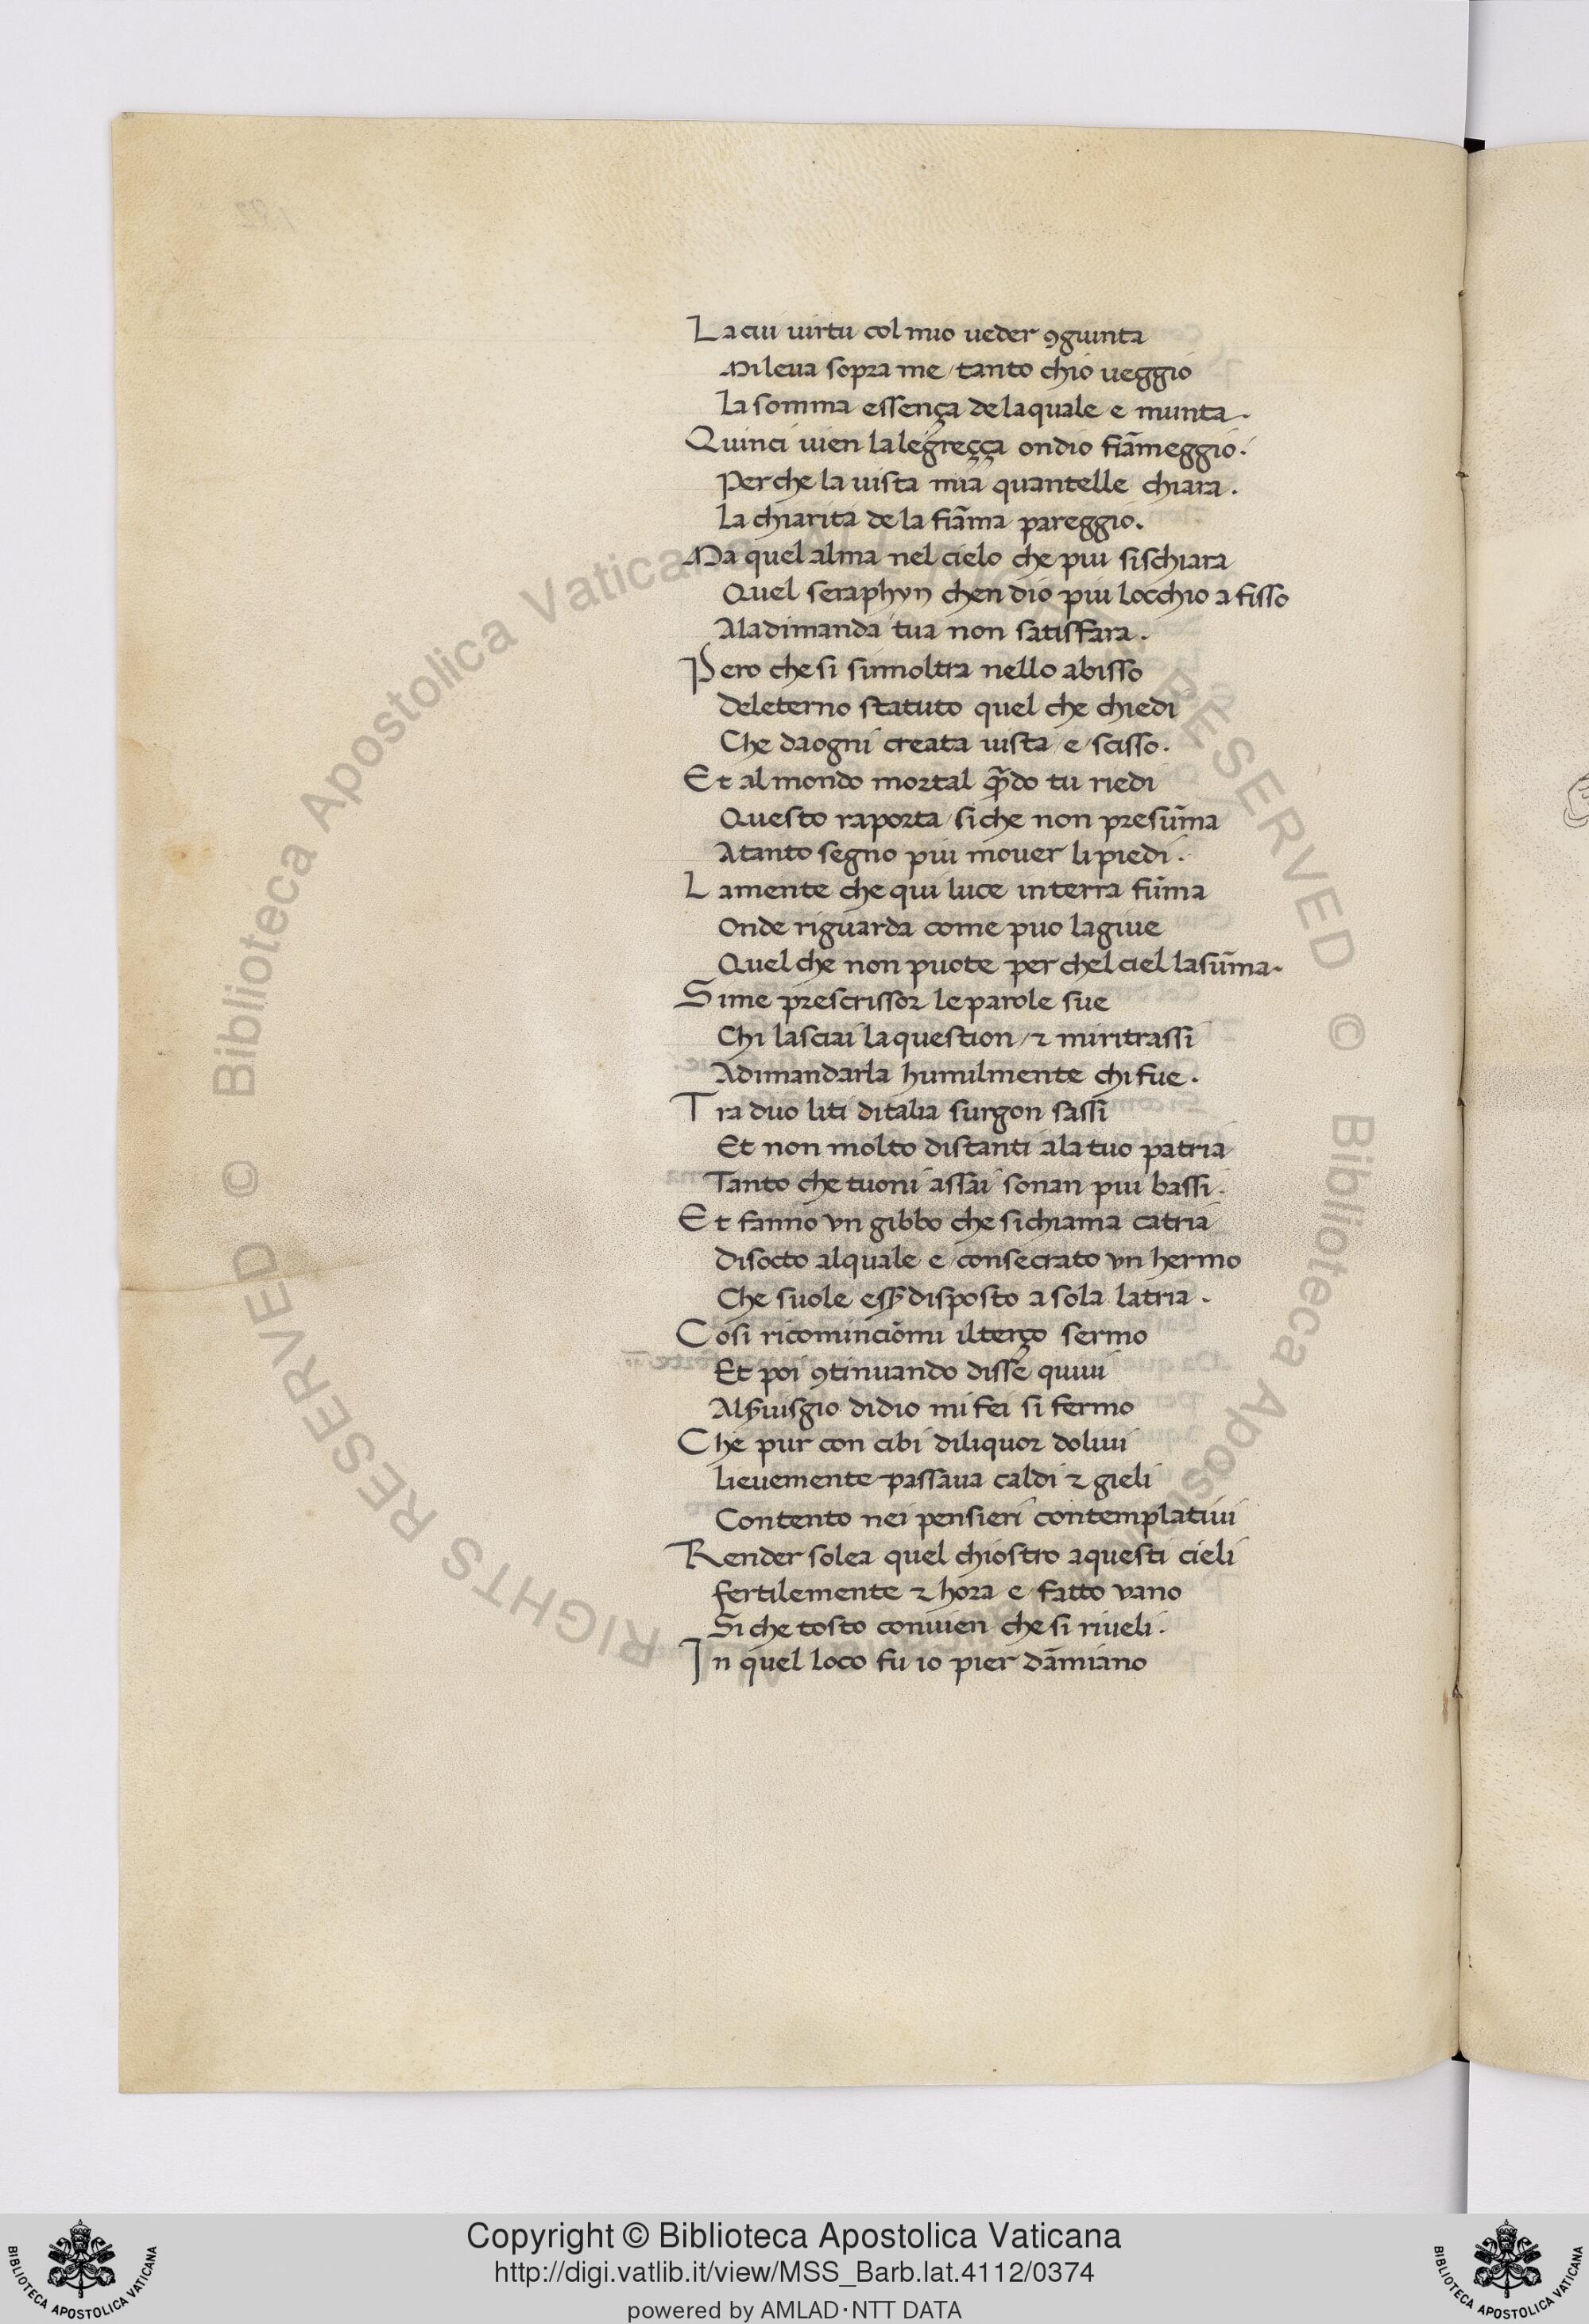 La cui uirtu col mio ueder ꝯgiunta
Mi leua sopra me / tanto chio ueggio
La somma essença de la quale e munta.
Quinci uien la legreçça ondio fiãmeggio.
Perche la uista mia quantelle chiara.
La chiarita de la fiãma pareggio.
Ma quel alma nel cielo che piu si schiara
Quel seraphyn chen dio piu locchio a fisso
A la dimanda tua non satisfara.
Pero che si sinnoltra nello abisso
deleterno statuto quel che chiedi
Che da ogni creata uista / e / scisso.
Et al mondo mortal qñdo tu riedi
Questo raporta / si che non presũma
A tanto segno piu mouer li piedi.
La mente che qui luce in terra fũma
Onde riguarda come puo lagiue
Quel che non puote per chel ciel lasũma.
Si me prescrissor le parole sue
Chi lasciai la question / ⁊ mi ritrassi
A dimandarla humilmente chi fue.
Tra duo liti ditalia surgon sassi
Et non molto distanti a la tuo patria
Tanto che tuoni assai sonan piu bassi.
Et fanno vn gibbo che si chiama catria
disocto al quale e / consecrato vn hermo
Che suole esß disposto a sola latria.
Cosi ricominciõmi il terço sermo
Et poi ꝯtinuando disse quiui
Al ßuisgio di dio mi fei si fermo
Che pur con cibi di liquor doliui
lieuemente passaua caldi ⁊ gieli
Contento nei pensieri contemplatiui
Render solea quel chiostro a questi cieli
fertilemente ⁊ hora e / fatto vano
Si che tosto conuien che si riueli.
In quel loco fu io pier dãmiano
© Biblioteca Apostolica Vaticana ALL RIGHTS RESERVED
© Biblioteca Apostolica Vaticana ALL RIGHTS RESERVED
Copyright © Biblioteca Apostolica Vaticana
http://digi.vatlib.it/view/MSS_Barb.lat.4112/0374
powered by AMLAD·NTT DATA
BIBLIOTECA APOSTOLICA VATICANA
BIBLIOTECA APOSTOLICA VATICANA